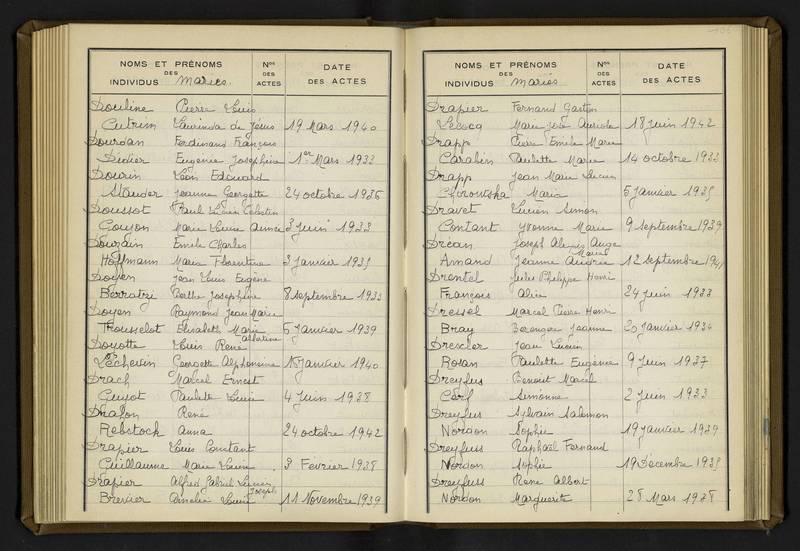 NOMS ET PRÉNOMS DES INDIVIDUS Mariés. Nos DES ACTES DATE DES ACTES
Douline Pierre Louis
Cutrim Laurinda de Jésus 19 Mars 1940
Dourdan Ferdinand François
Didier Eugénie Joséphine 1er Mars 1933
Dourin Léon Edouard
Stauder Jeanne Georgette 24 octobre 1936
Doussot Paul Lucien Célestin
Gouson Marie Louise Aimée 3 juin 1933
Douzain Emile Charles
Hoffmann Maria Florentine 3 janvier 1935
Doyen Jean Louis Eugène
Berratzi Berthe Joséphine 8 septembre 1933
Doyen Raymond Jean Marie
Trousselot Elisabeth Marie 5 janvier 1939
Doyotte Louis René Albertine
Lechevin Georgette Alphonsine janvier 1940
Drach Marcel Ernest
Guyot Paulette Lucie 4 juin 1938
Drafon René
Rebstock Anna 24 octobre 1942
Drapier Louis Constant
Guillaume Marie Louise 3 Février 1938
Drapier Alfred Gabriel Lucien Joseph
Brevier Amélie Louise 11 Novembre 1939
NOMS ET PRÉNOMS DES INDIVIDUS Mariés Nos DES ACTES DATE DES ACTES
Drapier Fernand Gaston
Lecocq Marie José 18 juin 1942
Drapp Pierre Emile Marie
Carabin Paulette Marie 14 octobre 1933
Drapp Jean Marie Lucien
Chirontska Maria 5 janvier 1935
Dravet Lucien Simon
Contant Yvonne Marie 9 septembre 1939
Dréan Joseph Alexis Ange Marie
Amand Jeanne Andrée 12 septembre 1941
Drentel Jules Philippe Henri
François Alice 24 juin 1933
Dressel Marcel Pierre Henri
Bray Bérengère Jeanne 20 janvier 1934
Drexler Jean Lucien
Rosan Paulette Eugénie 9 juin 1937
Dreyfus Benoit Marcel
Cerf Simonne 2 juin 1933
Dreyfus Sylvain Salomon
Nordon Sophie 19 janvier 1939
Dreyfuss Raphaël Fernand
Nordon Sophie 19 Décembre 1935
Dreyfuss René Albert
Nordon Marguerite 28 Mars 1938